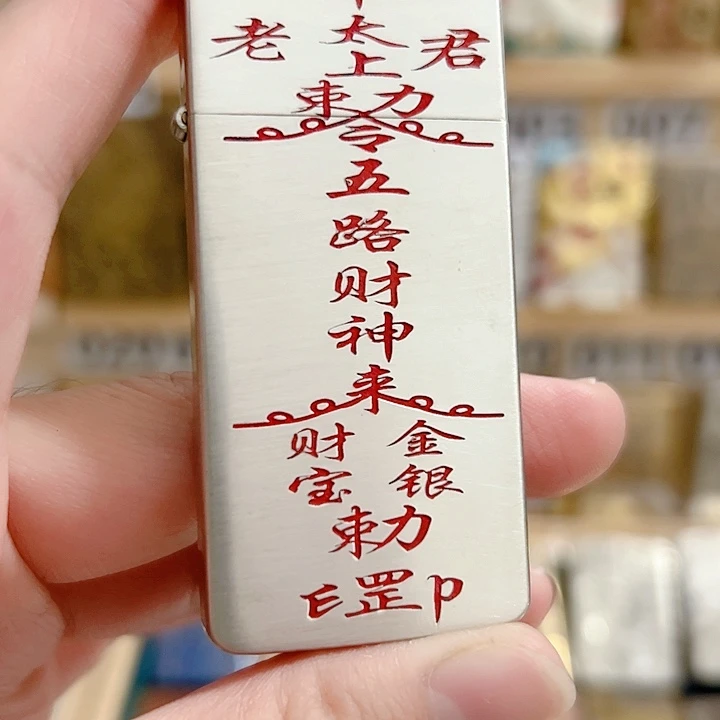 太
老 上 君
勅
令
五
路
财
神
来
财 金
宝 银
勅
罡